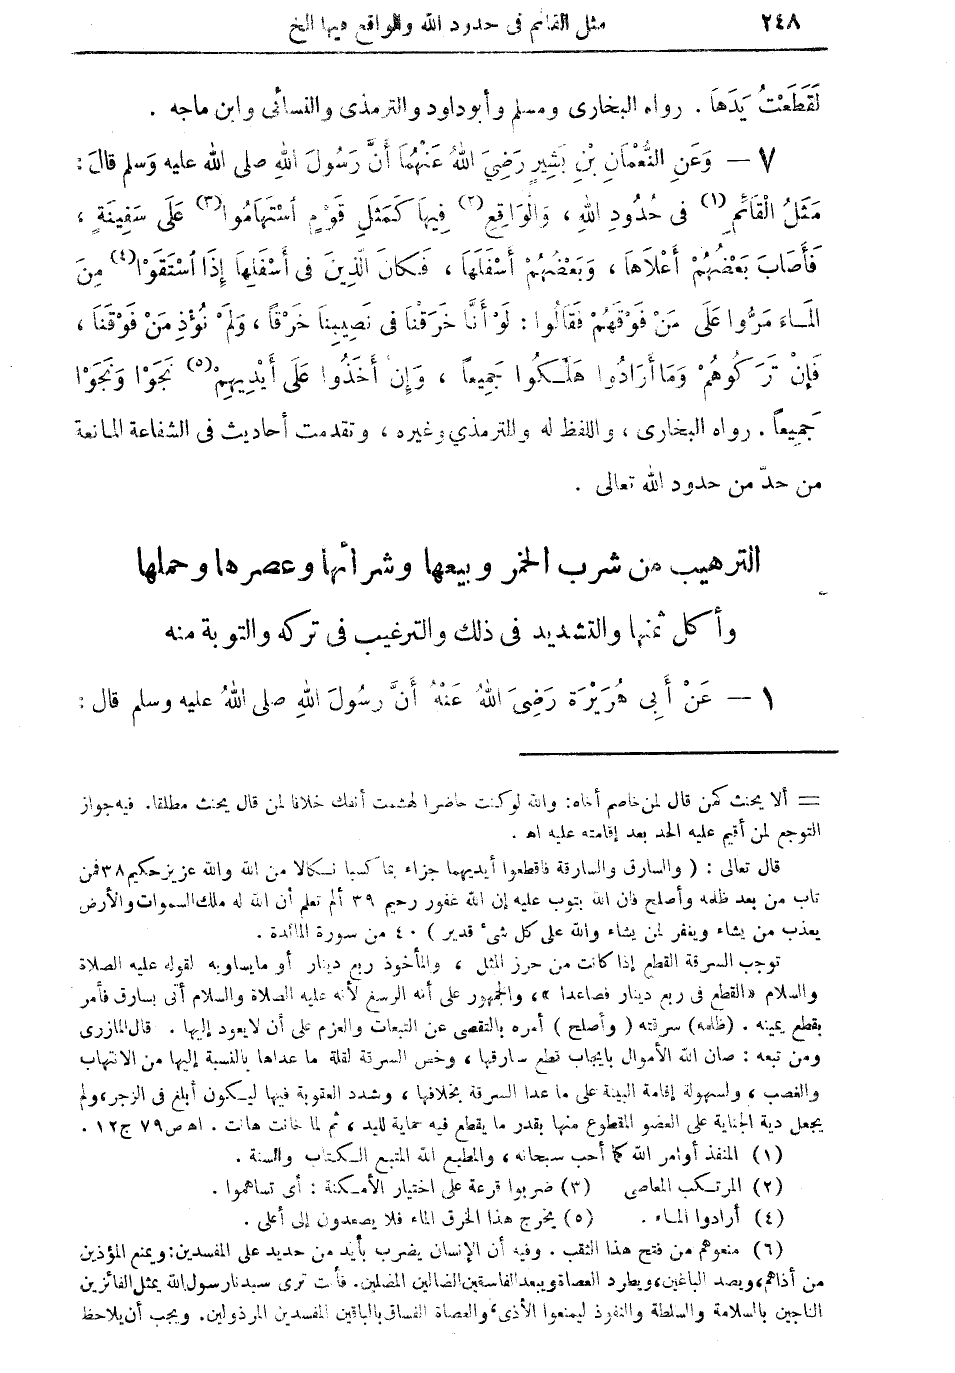 ٢٤٨ مثل القائم فى حدود الله والواقع فيها الخ
لَقَطَعْتُ يَدَهَا . رواه البخارى ومسلم وأبوداود والترمذى والنسائى وابن ماجه .
٧ — وَعَنِ النُّعْمَانِ بْنِ بَشِيرٍ رَضِيَ اللهُ عَنْهُمَا أَنَّ رَسُولَ اللهِ صلى الله عليه وَسلم قالَ :
مَثَلُ الْقَائِمِ (١) فى حُدُودِ اللهِ ، وَالْوَاقِعِ (٢) فِيهَا كَمَثَلِ قَوْمٍ اسْتَهَامُوا (٣) عَلَى سَفِينَةٍ ،
فَأَصَابَ بَعْضُهُمْ أَعْلَاهَا ، وَبَعْضُهُمْ أَسْفَلَهَا ، فَكَانَ الَّذِينَ فى أَسْفَلِهَا إِذَا اسْتَقَوْا (٤) مِنَ
الْمَاءِ مَرُّوا عَلَى مَنْ فَوْقَهُمْ فَقَالُوا : لَوْ أَنَّا خَرَقْنَا فى نَصِيبِنَا خَرْقًا ، وَلَمْ نُؤْذِ مَنْ فَوْقَنَا ،
فَإِنْ تَرَكُوهُمْ وَمَا أَرَادُوا هَلَكُوا جَمِيعاً ، وَإِن أَخَذُوا عَلَى أَيْدِيهِمْ (٥) نَجَوْا وَنَجَوْا
جَمِيعاً . رواه البخارى ، واللفظ له والترمذي وغيره ، وتقدمت أحاديث فى الشفاعة المانعة
من حدّ من حدود الله تعالى .
الترهيب من شرب الخمر وبيعها وشرائها وعصرها وحملها
وأكل ثمنها والتشديد فى ذلك والترغيب فى تركه والتوبة منه
١ — عَنْ أَبِى هُرَيْرَةَ رَضِىَ اللهُ عَنْهُ أَنَّ رَسُولَ اللهِ صلى اللهُ عليه وسلم قال :
= ألا يحنث كمن قال لمن خاصم أخاه: والله لوكنت حاضرا لهشمت أنفك خلافا لمن قال يحنث مطلقا. فيه جواز
التوجع لمن أقيم عليه الحد بعد إقامته عليه اهـ .
قال تعالى : ( والسارق والسارقة فاقطعوا أيديهما جزاء بما كسبا نكالا من الله والله عزيز حكيم ٣٨ فمن
تاب من بعد ظلمه وأصلح فان الله يتوب عليه إن الله غفور رحيم ٣٩ ألم تعلم أن الله له ملك السموات والأرض
يعذب من يشاء ويغفر لمن يشاء والله على كل شىء قدير ) ٤٠ من سورة المائدة .
توجب السرقة القطع إذا كانت من حرز المثل ، والمأخوذ ربع دينار أو مايساويه لقوله عليه الصلاة
والسلام «القطع فى ربع دينار فصاعدا» ، والجمهور على أنه الرسغ لأنه عليه الصلاة والسلام أتى بسارق فأمر
بقطع يمينه . (ظلمه) سرقته ( وأصلح ) أمره بالتقصى عن التبعات والعزم على أن لايعود إليها . قال المازرى
ومن تبعه : صان الله الأموال بايجاب قطع سارقها ، وخص السرقة لقلة ما عداها بالنسبة إليها من الانتهاب
والغصب ، ولسهولة إقامة البينة على ما عدا السرقة بخلافها ، وشدد العقوبة فيها ليكون أبلغ فى الزجر، ولم
يجعل دية الجناية على العضو المقطوع منها بقدر ما يقطع فيه حماية لليد ، ثم لما خانت هانت . اهـ ص ٧٩ ج ١٢ .
(١) المنفذ أوامر الله كما أحب سبحانه ، والمطيع الله المتبع الكتاب والسنة .
(٢) المرتكب المعاصى (٣) ضربوا قرعة على اختيار الأمكنة : أى تساهموا .
(٤) أرادوا الماء . (٥) يخرج هذا الخرق الماء فلا يصعدون إلى أعلى .
(٦) منعوهم من فتح هذا الثقب . وفيه أن الإنسان يضرب بأيد من حديد على المفسدين: ويمنع المؤذين
من أذاهم، ويصد الباغين، ويطرد العصاة ويبعد الفاسقين الضالين المضلين. فأنت ترى سيدنا رسول الله يمثل الفائزين
الناجين بالسلامة والسلطة والنفوذ ليمنعوا الأذى، والعصاة الفساق بالباقين المفسدين المرذولين. ويجب أن يلاحظ